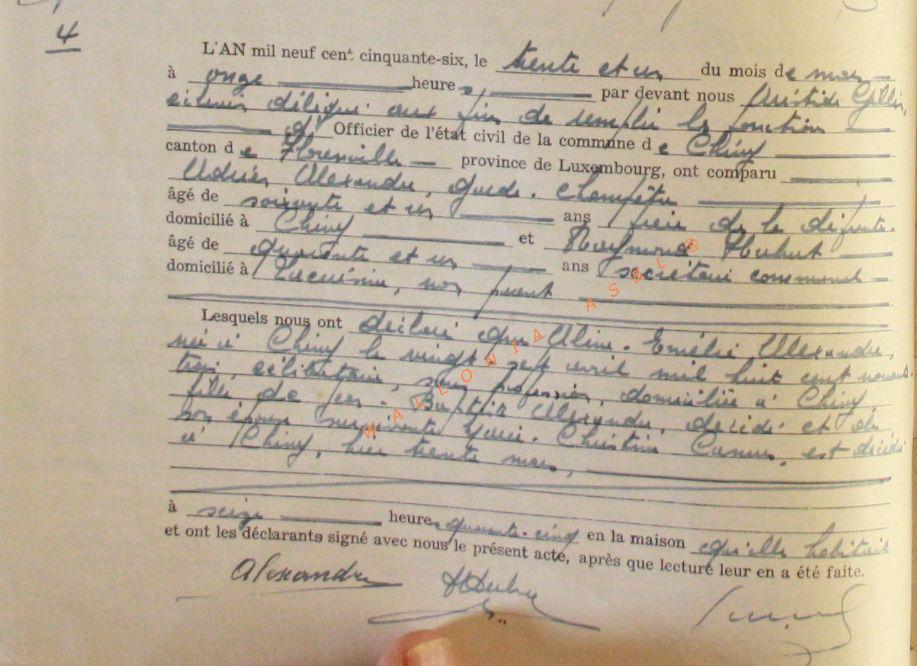 4
L'AN mil neuf cent cinquante-six, le trente et un du mois de mars
à onze heures, par devant nous Aristide Gillet,
échevin délégué aux fins de remplir la fonction
d' Officier de l'état civil de la commune de Chiny
canton de Florenville province de Luxembourg, ont comparu
Adrien Alexandre, garde-champêtre
âgé de soixante et un ans frère de la défunte
domicilié à Chiny et Raymond Hubert
âgé de quarante et un ans secrétaire communal
domicilié à Lacuisine, non parent
Lesquels nous ont déclaré que Aline-Emélie Alexandre,
née à Chiny le vingt-sept avril mil huit cent nonante
trois, célibataire, sans profession, domiciliée à Chiny
fille de Jean-Baptiste Alexandre, décédé et de
son épouse survivante Marie-Christine Camus, est décédée
à Chiny, hier trente mars,
à seize heures quarante-cinq en la maison qu'elle habitait
et ont les déclarants signé avec nous le présent acte, après que lecture leur en a été faite.
Alexandre HHubert
WALLONIA ASBL ®